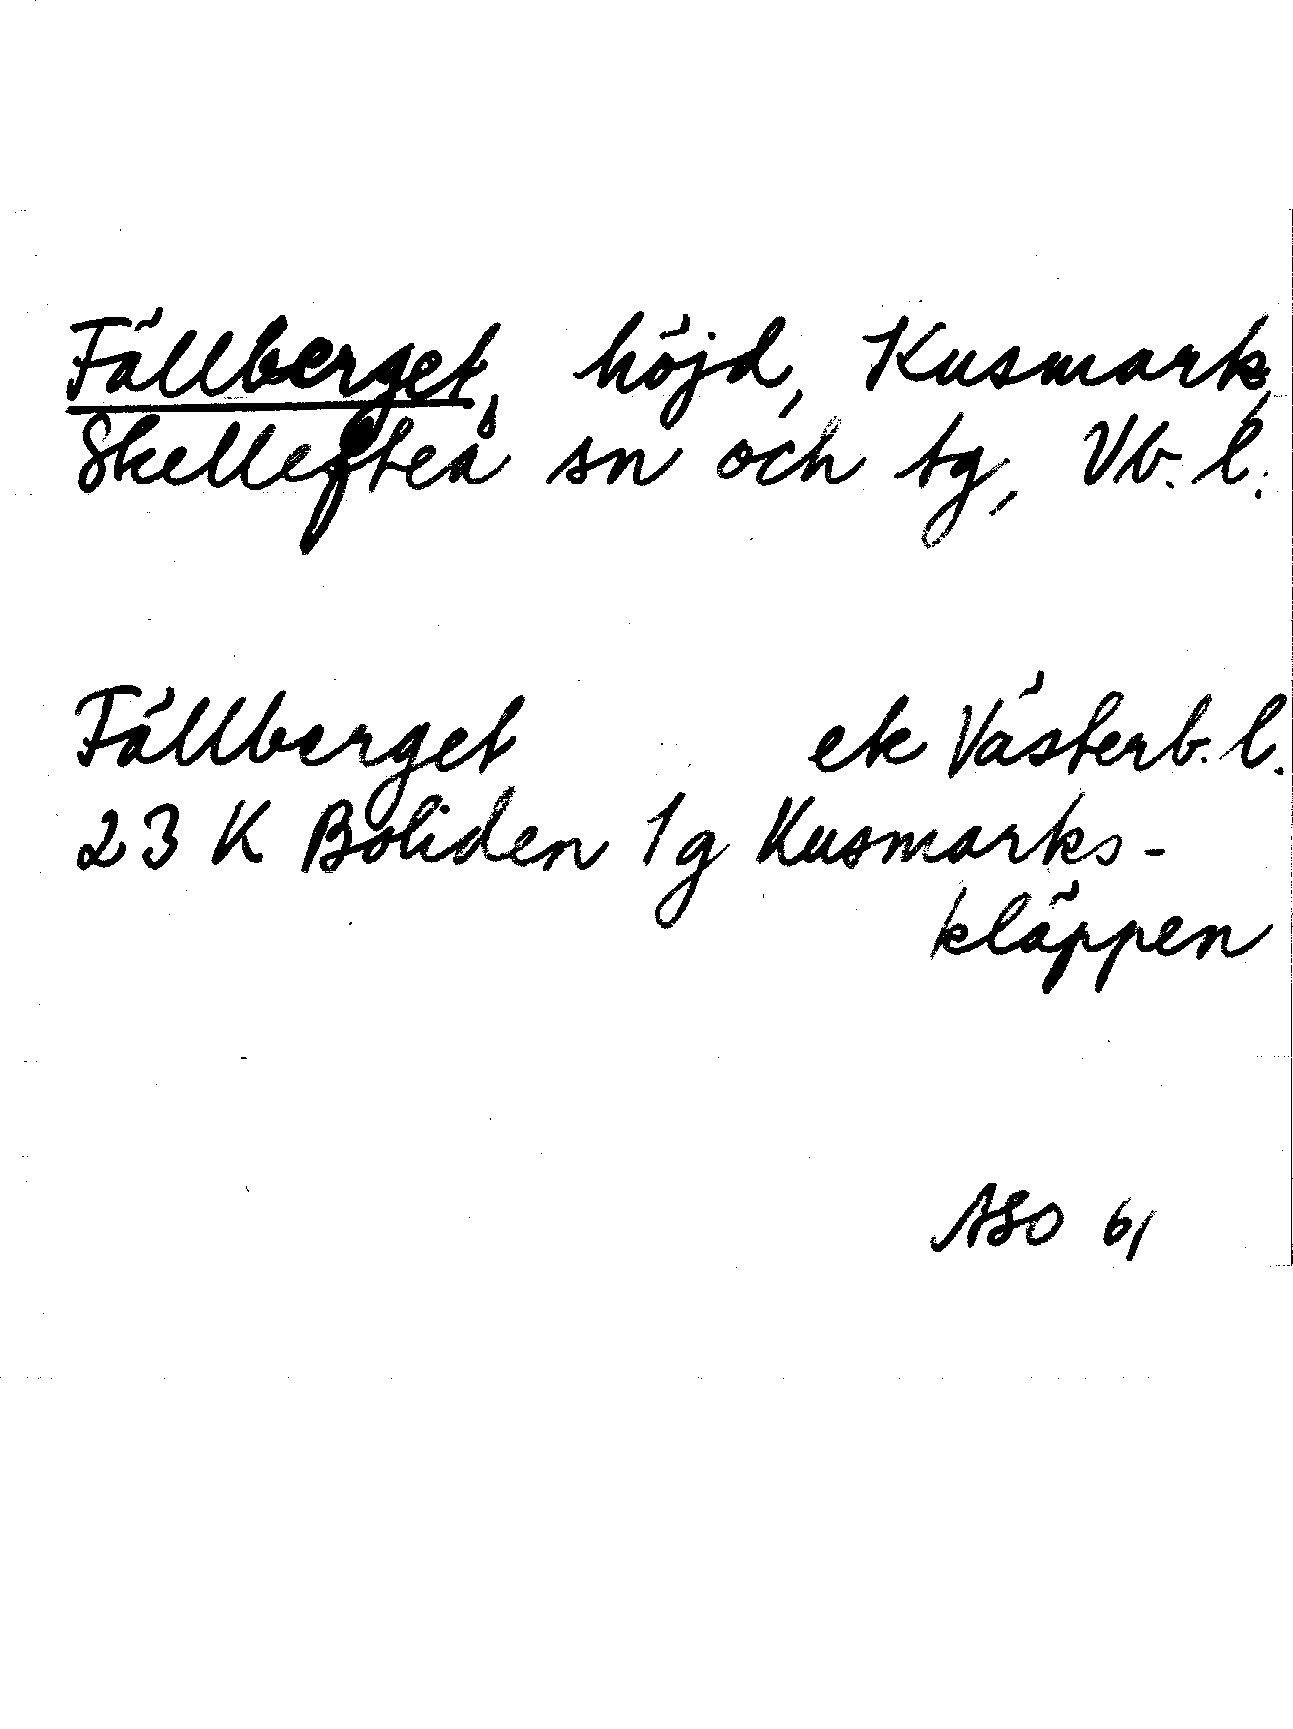 Fällberget, höjd, Kusmark,
Skellefteå sn och tg, Vb. l.
Fällberget ek Västerb. l.
23 K Boliden 1g Kusmarks-
kläppen
ASO 61